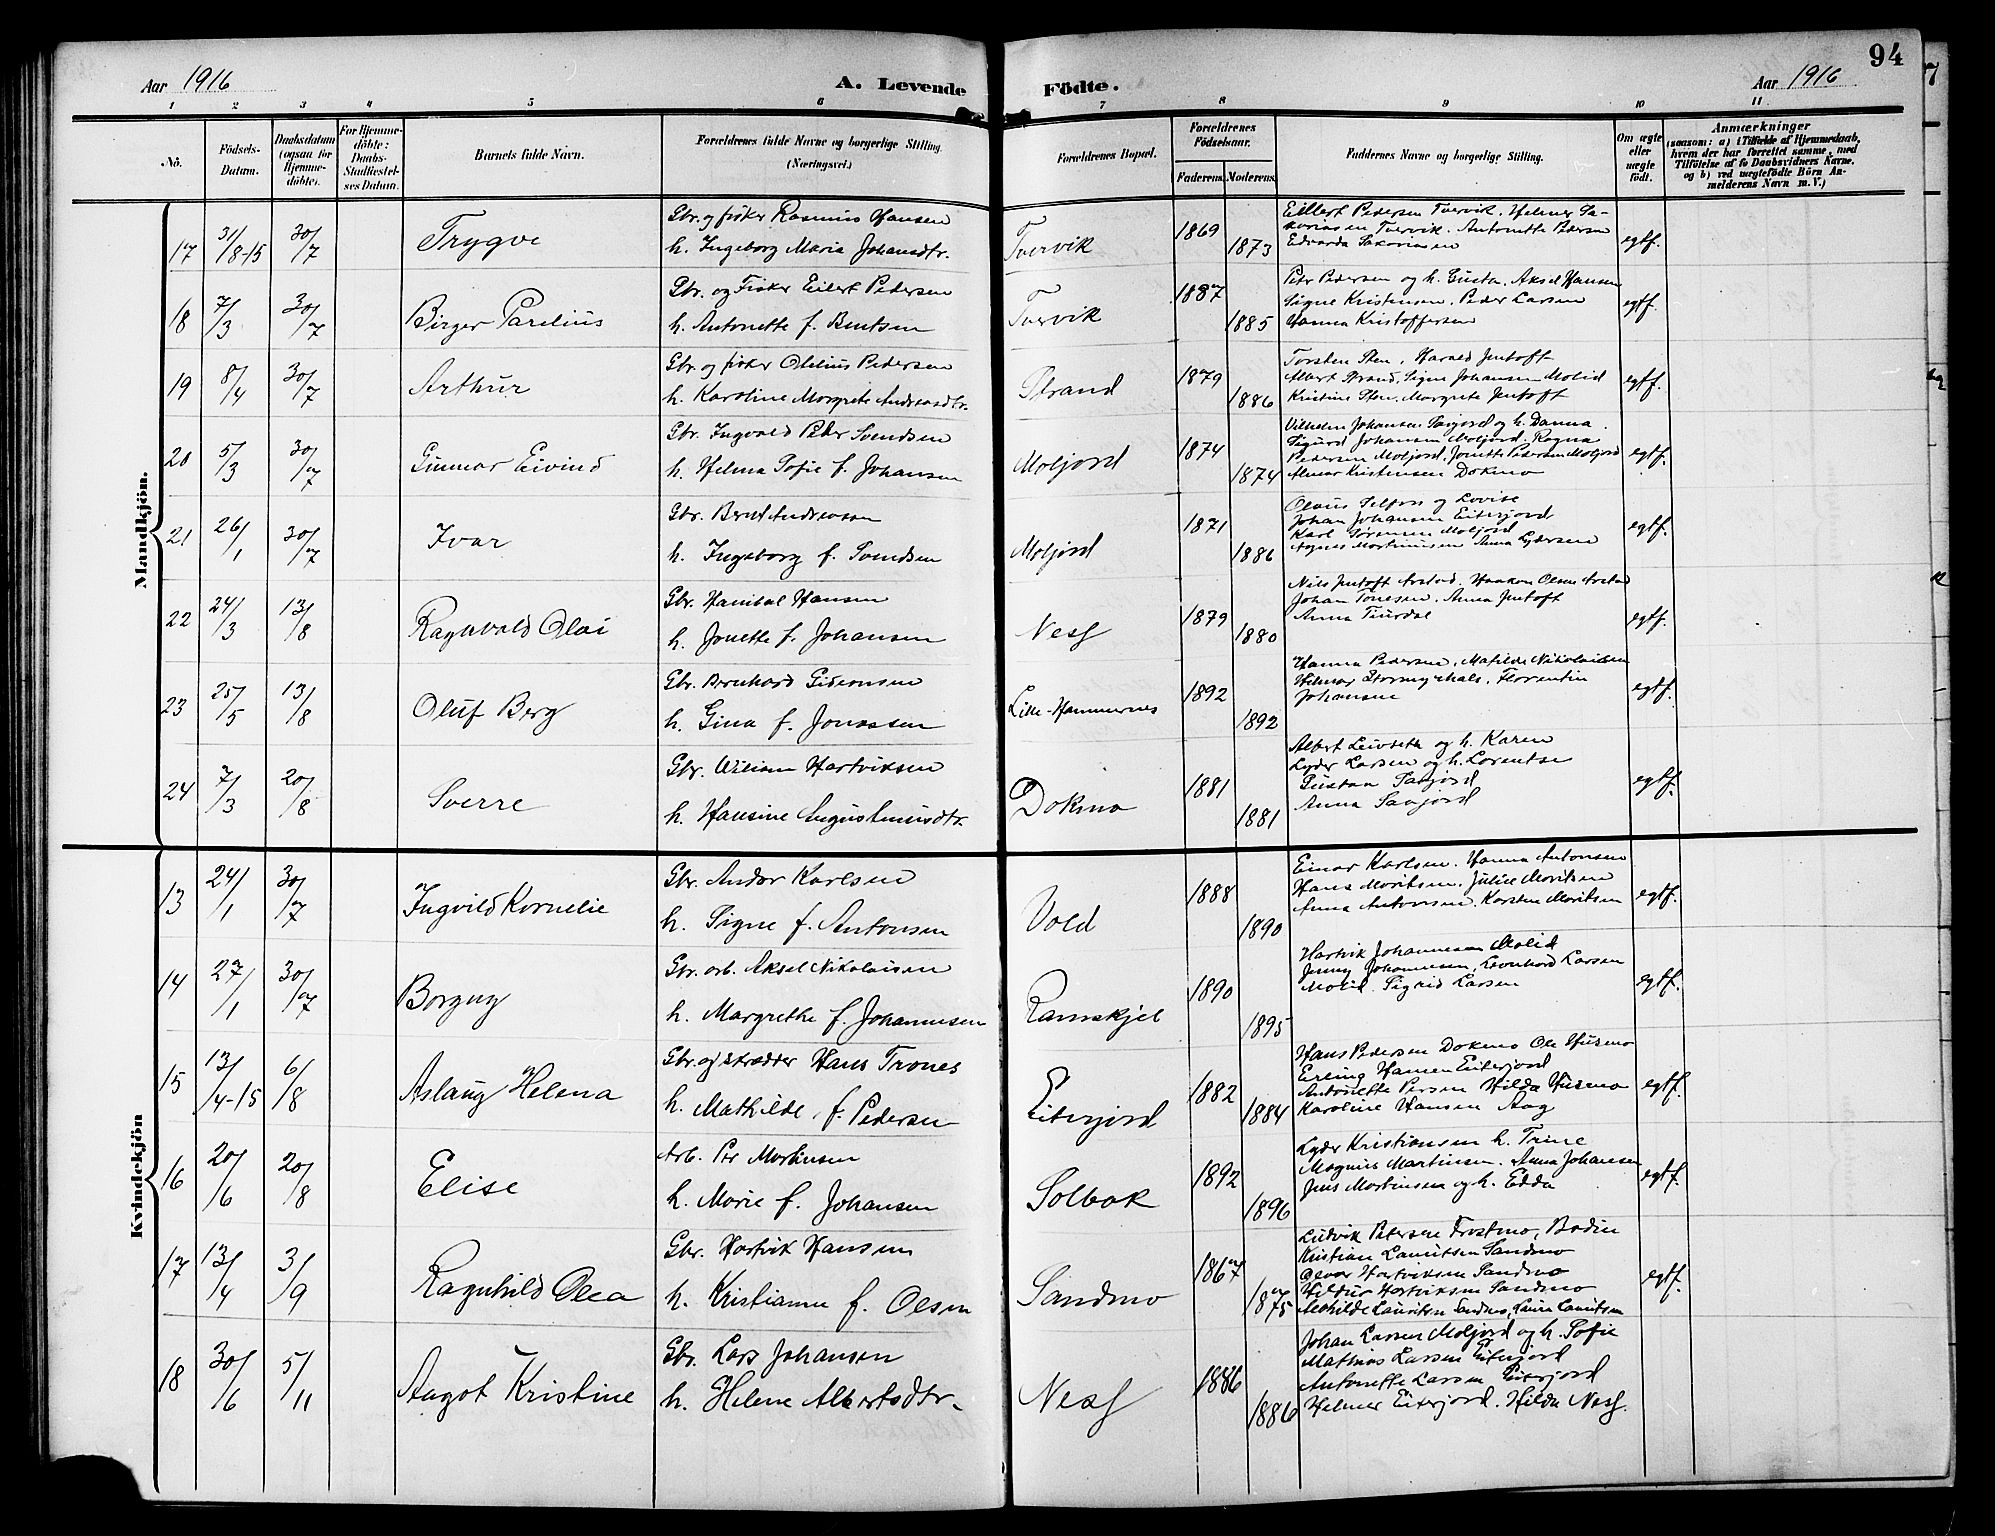 94
Aar 1916
A. Levende
Födte.
Aar 1916
1 2 3 4 5 6 7 8 9 10 11
No.
Födsels-
Datum.
Daabsdatum
(ogsaa for
Hjemme-
döbte).
For Hjemme-
döbte:
Daabs-
Stadfæstel-
ses Datum.
Barnets fulde Navn.
Forældrenes fulde Navne og borgerlige Stilling.
(Næringsvei.)
Forældrenes Bopæl.
Forældrenes
Födselsaar.
Faderens. Moderens.
Faddernes Navne og borgerlige Stilling.
Om ægte
eller
uægte
født.
Anmærkninger
(saasom: a) i Tilfælde af Hjemmedaab,
hvem der har forrettet samme, med
Tilföielse af to Daabsvidners Navne,
og b) ved uægtefödte Börn An-
melderens Navn m. V.)
Mandkjön.
17 31/8-15 30/7 Trygve
Gbr. og fisker Rasmus Hansen
h. Ingeborg Maria Johansdtr.
Tvervik 1869 1873
Eillert Pedersen Tvervik. Helmer Sa-
kariasen Tvervik. Antonette Pedersen
Edvarda Sakariasen
egtf.
18 7/3 30/7 Birger Parelius
Gbr. og Fisker Eilert Pedersen
h. Antonette f. Bentsen
Tvervik 1887 1885
Petr Pedersen og h. Gusta. Aksel Hansen
Signe Kristensen. Peder Larsen
Hanna Kristoffersen
egtf.
19 8/4 30/7 Arthur
Gbr. og fisker Olelius Pedersen
h. Karoline Margrete Andreasdtr.
Strand 1879 1886
Torsten Sten. Harald Jentoft
Albert Strand. Signe Johansen Molid
Kristine Sten. Margrete Jentoft
egtf.
20 5/3 30/7 Gunnar Eivind
Gbr. Ingvald Peder Svendsen
h. Helma Sofie f. Johansen
Moljord 1874 1874
Vilhelm Johansen Savjord og h. Danna.
Sigurd Johansen Moljord. Ragna
Pedersen Moljord. Jonette Pedersen Moljord
Almar Kristensen Dokmo
egtf.
21 26/1 30/7 Ivar
Gbr. Bernt Andreassen
h. Ingeborg f. Svendsen
Moljord 1871 1886
Olaus Selfors og Lovise
Johan Johansen Eiterjord
Karl Sørensen Moljord
Agnes Martinusen Anna Lydersen
egtf.
22 24/3 13/8 Ragnvald Olai
Gbr. Hanibal Hansen
h. Jonette f. Johansen
Nesf 1879 1880
Nils Jentoft Arstad. Haakon Olsen Arstad
Johan Tonesen. Anna Jentoft
Anna Tiurdal
egtf.
23 25/5 13/8 Oluf Berg
Gbr. Bernhard Gideonsen
h. Gina f. Jonassen
Lille-Hammernes 1892 1892
Hanna Pedersen. Matilde Nikolaisen
Helmer Stormyrhals. Florentin
Johansen
egtf.
24 7/3 20/8 Sverre
Gbr. Wiliam Hartviksen
h. Hansine Augustinusdtr.
Dokmo 1881 1881
Albert Leivseth og h. Karen
Lyder Larsen og h. Lorentse
Gustav Savjord
Anna Savjord
egtf.
Kvindekjön
13 24/1 30/7 Ingvild Kornelie
Gbr. Andor Karlsen
h. Signe f. Antonsen
Vold 1888 1890
Einar Karlsen. Hanna Antonsen
Hans Moritsen. Julie Moritsen
Anna Antonsen. Karsten Moritsen
egtf.
14 27/1 30/7 Borgny
Gbr. arb. Aksel Nikolaisen
h. Margrethe f. Johannesen
Ramskjel 1890 1895
Hartvik Johannesen Molid
Jenny Johannesen. Leonhard Larsen
Molid. Sigrid Larsen
egtf.
15 13/4-15 6/8 Aslaug Helena
Gbr. og skrædder Hans Trones
h. Mathilde f. Pedersen
Eiterjord 1882 1884
Hans Pedersen Dokmo Ole Husmo
Erling Hansen Eiterjord
Antonette Persen Hilda Husmo
Karoline Hansen Aag
egtf.
16 20/6 20/8 Elise
Arb. Per Martinsen
h. Marie f. Johansen
Solbak 1892 1896
Lyder Kristiansen h. Trine
Magnus Martinsen. Anna Johansen
Jens Martinsen og h. Edda
egtf.
17 13/4 3/9 Ragnhild Olea
Gbr. Hartvik Hansen
h. Kristianne f. Olsen
Sandmo 1867 1875
Ludvik Petersen Frostmo, Bodin
Kristian Lauritsen Sandmo
Oluar Hartviksen Sandmo
Hildur Hartviksen Sandmo
Mathilde Lauritsen Sandmo, Laura Lauritsen
egtf.
18 30/6 5/11 Aagot Kristine
Gbr. Lars Johansen
h. Helene Albertsdtr.
Nesf 1886 1886
Johan Larsen Moljord og h. Sofie
Mathias Larsen Eiterjord
Antonette Larsen Eiterjord
Helmer Eiterjord. Hilda Nesf.